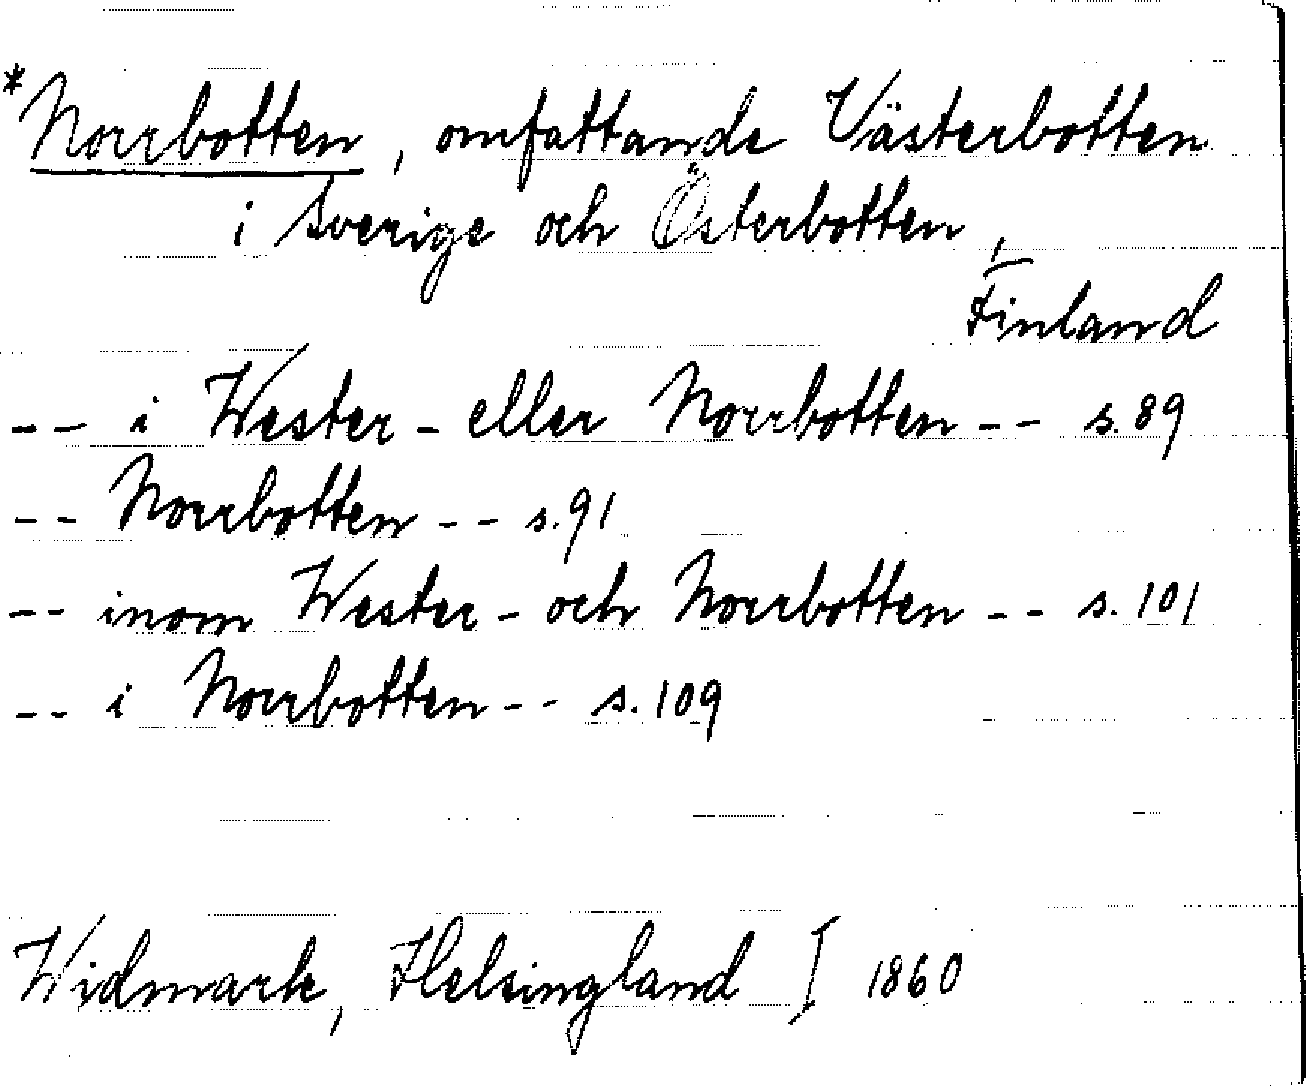 *Norrbotten, omfattande Västerbotten
i Sverige och Österbotten,
Finland
-- i Wester- eller Norrbotten -- s. 89
-- Norrbotten -- s. 91
-- inom Wester- och Norrbotten -- s. 101
-- i Norrbotten -- s. 109
Widmark, Helsingland I 1860